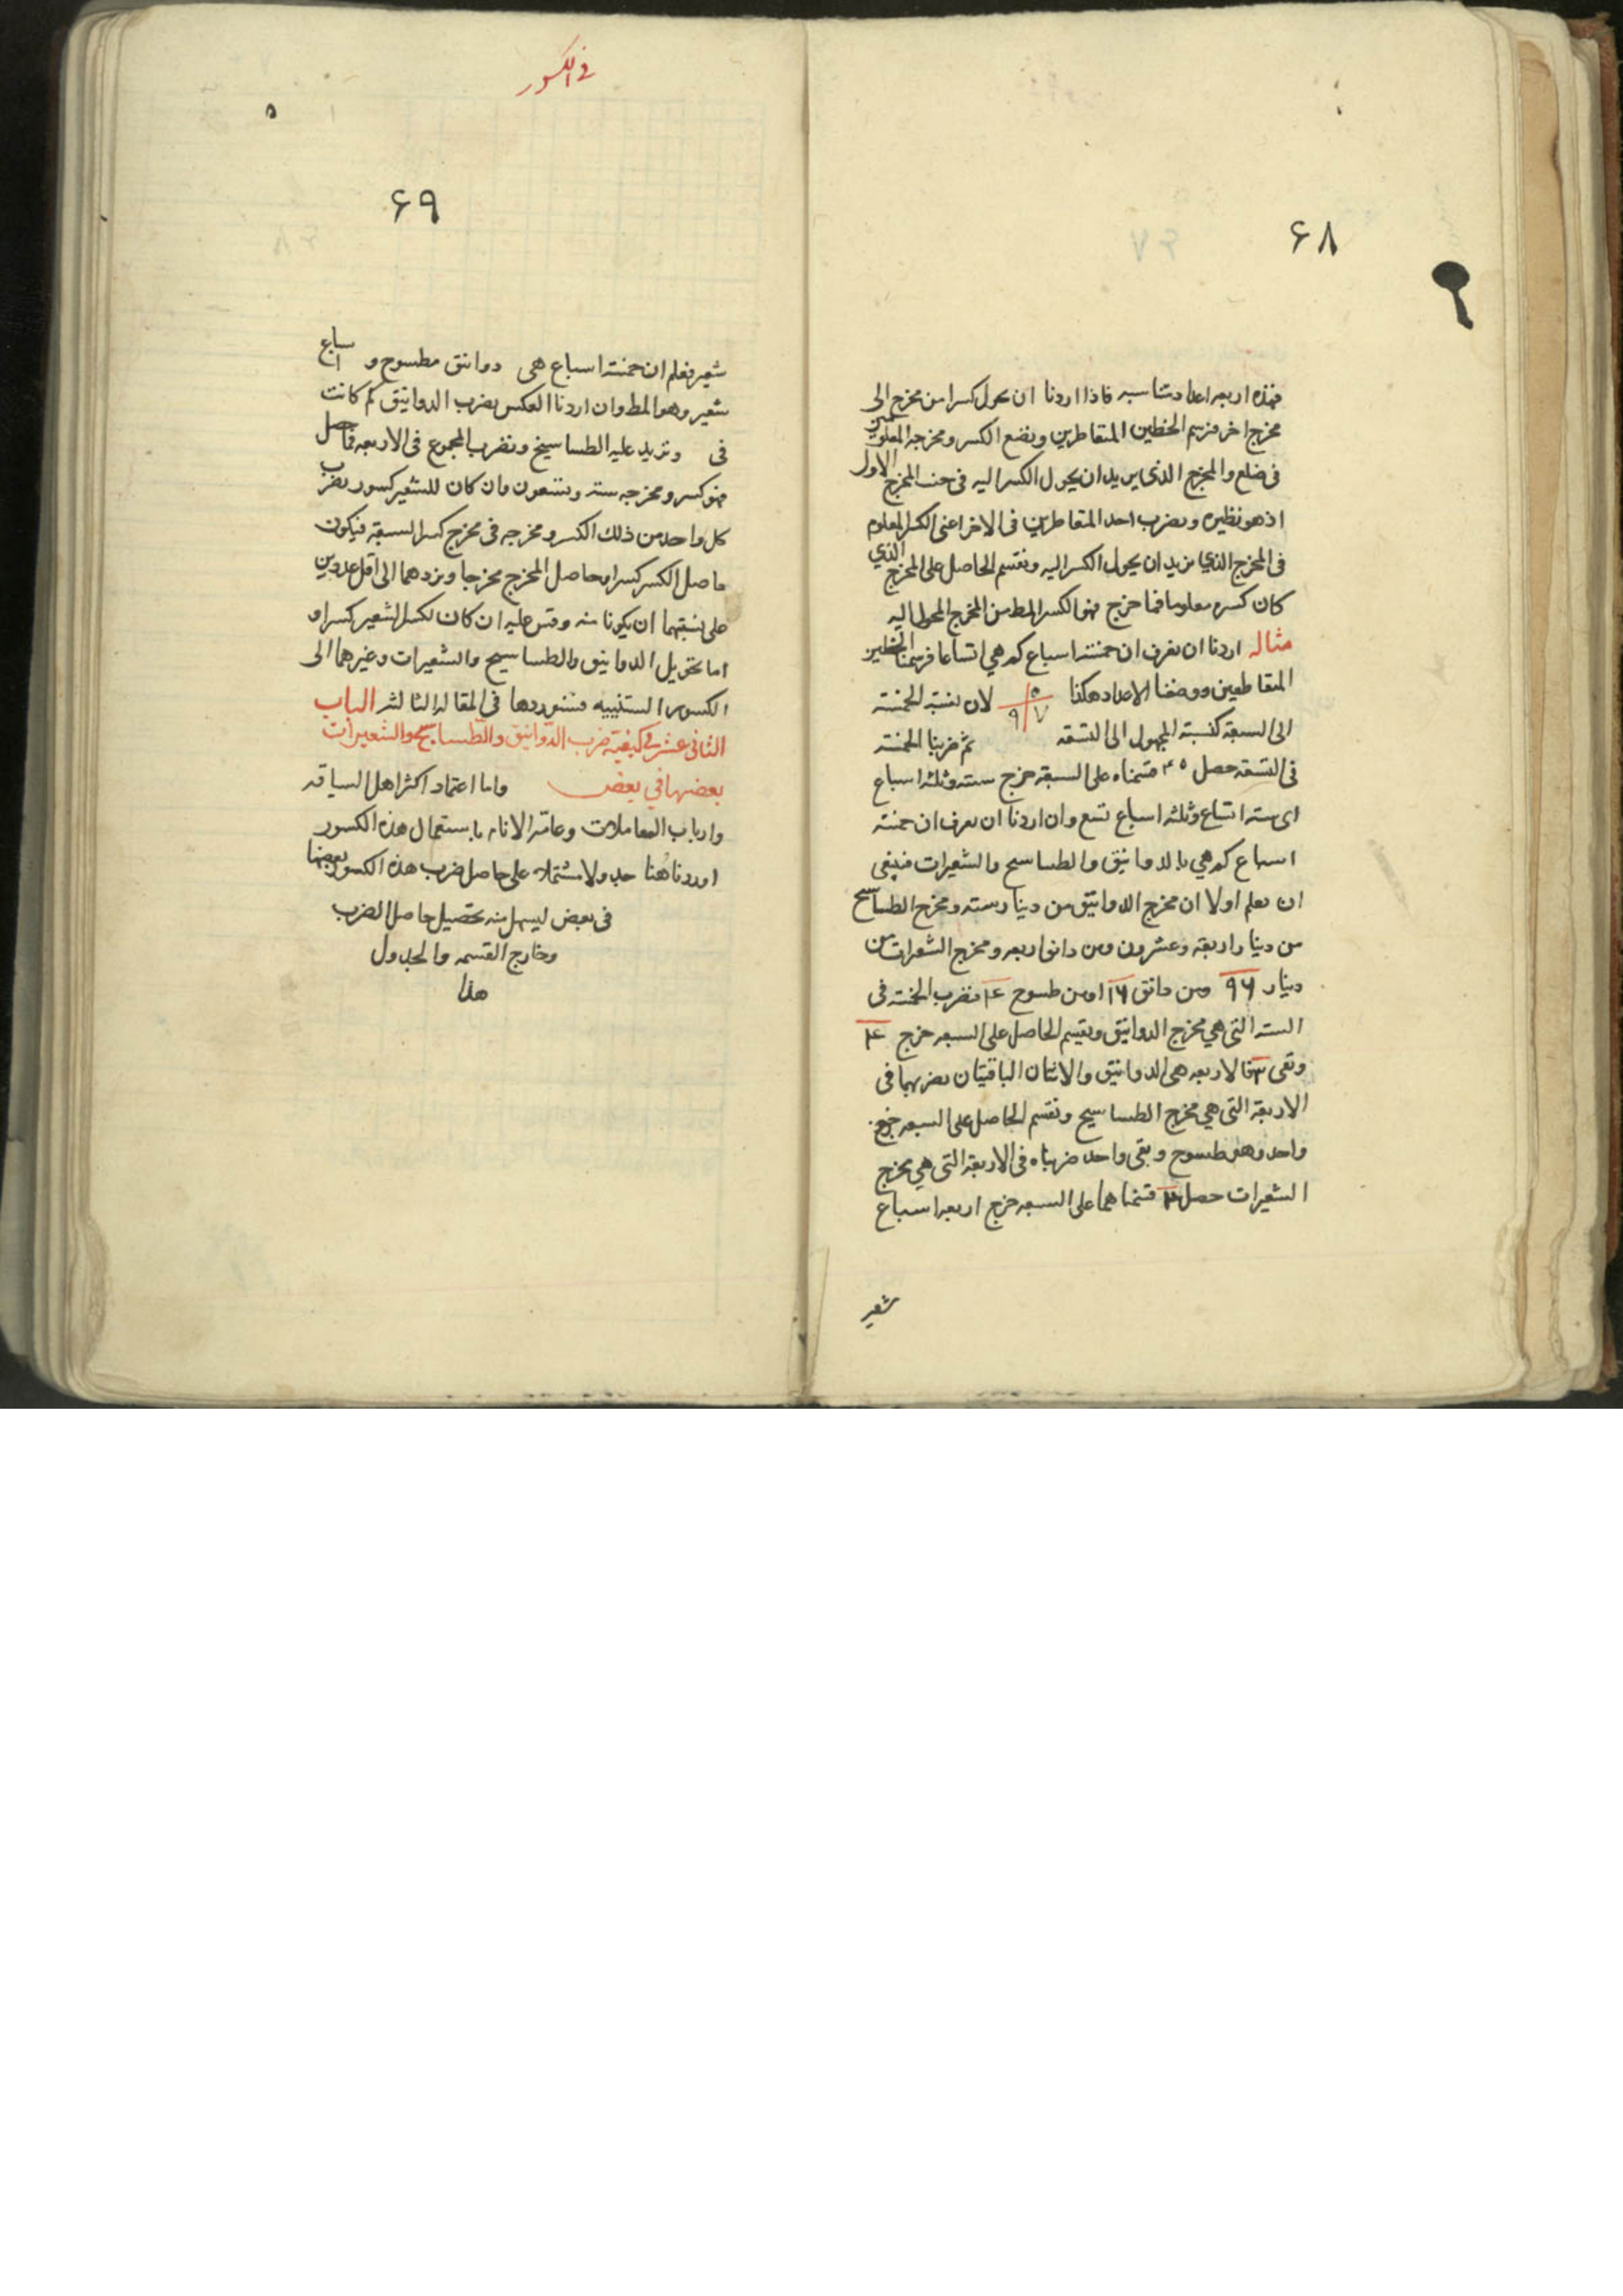 ۶۸
فهذه اربعه اعداد متناسبه فاذا اردنا ان نحول كسرا من مخرج الى
مخرج اخر فنرسم الخطين المتقاطرين ونضع الكسر ومخرجه المعلومين
فى ضلع والمخرج الذى يريد ان يحول الكسر اليه فى جنب المخرج الاول
اذ هو نظيره ونضرب احد المتقاطرين فى الاخر اعنى الكسر المعلوم
فى المخرج الذي نريد ان يحول الكسر اليه ونقسم الحاصل على المخرج الذي
كان كسره معلوما فما خرج فهو الكسر المط من المخرج المحول اليه
مثاله اردنا ان نعرف ان خمسة اسباع كم هي اتساعا فرسمنا الخطين
المتقاطعين ووضعنا الاعداد هكذا ۵ ۷ ۹ لان نسبة الخمسة
الى السبعة كنسبة المجهول الى التسعة ثم ضربنا الخمسة
فى التسعة حصل ۴۵ قسمناه على السبعة خرج ستة وثلثه اسباع
اى سته اتساع وثلثه اسباع تسع وان اردنا ان نعرف ان خمسة
اسباع كم هي بالدوانيق والطساسيج والشعيرات فينبغى
ان نعلم اولا ان مخرج الدوانيق من دينار سته ومخرج الطساسيج
من دينار اربعة وعشرون ومن دانق اربعه ومخرج الشعيرات من
دينار ۹۶ ومن دانق ۱۶ ومن طسوج ۴ فنضرب الخمسة فى
الستة التى هي مخرج الدوانيق ونقسم الحاصل على السبعه خرج ۴
وبقى ۲ فالاربعه هى الدوانيق والاثنان الباقيتان نضربهما فى
الاربعة التى هي مخرج الطساسيج ونقسم الحاصل على السبعه خرج
واحد وهو طسوج وبقى واحد ضربناه فى الاربعة التى هي مخرج
الشعيرات حصل ۴ قسمناهما على السبعه خرج اربعه اسباع
شعير
فى الكسور
۵
۶۹
شعير فعلم ان خمسة اسباع هى دوانق وطسوج و اسباع
شعير وهو المط وان اردنا العكس نضرب الدوانيق كم كانت
فى ونزيد عليه الطساسيج ونضرب المجموع فى الاربعه فما حصل
فهو كسر ومخرجه سته وتسعون وان كان للشعير كسور نضرب
كل واحد من ذلك الكسر ومخرجه فى مخرج كسر السبعة فيكون
حاصل الكسر كسرا وحاصل المخرج مخرجا ونردهما الى اقل عددين
على نسبتهما ان يكونا منه وقس عليه ان كان لكسر الشعير كسرا و
اما تحويل الدوانيق والطساسيج والشعيرات وغيرهما الى
الكسور الستينيه فسنوردها فى المقاله الثالثه الباب
الثانى عشر فى كيفية ضرب الدوانيق والطساسيج والشعيرات
بعضها في بعض واما اعتماد اكثر اهل السياقه
وارباب المعاملات وعامة الانام باستعمال هذه الكسور
اوردنا هنا جدولا مشتملا على حاصل ضرب هذه الكسور بعضها
فى بعض ليسهل منه تحصيل حاصل الضرب
وخارج القسمه والجدول
هذا